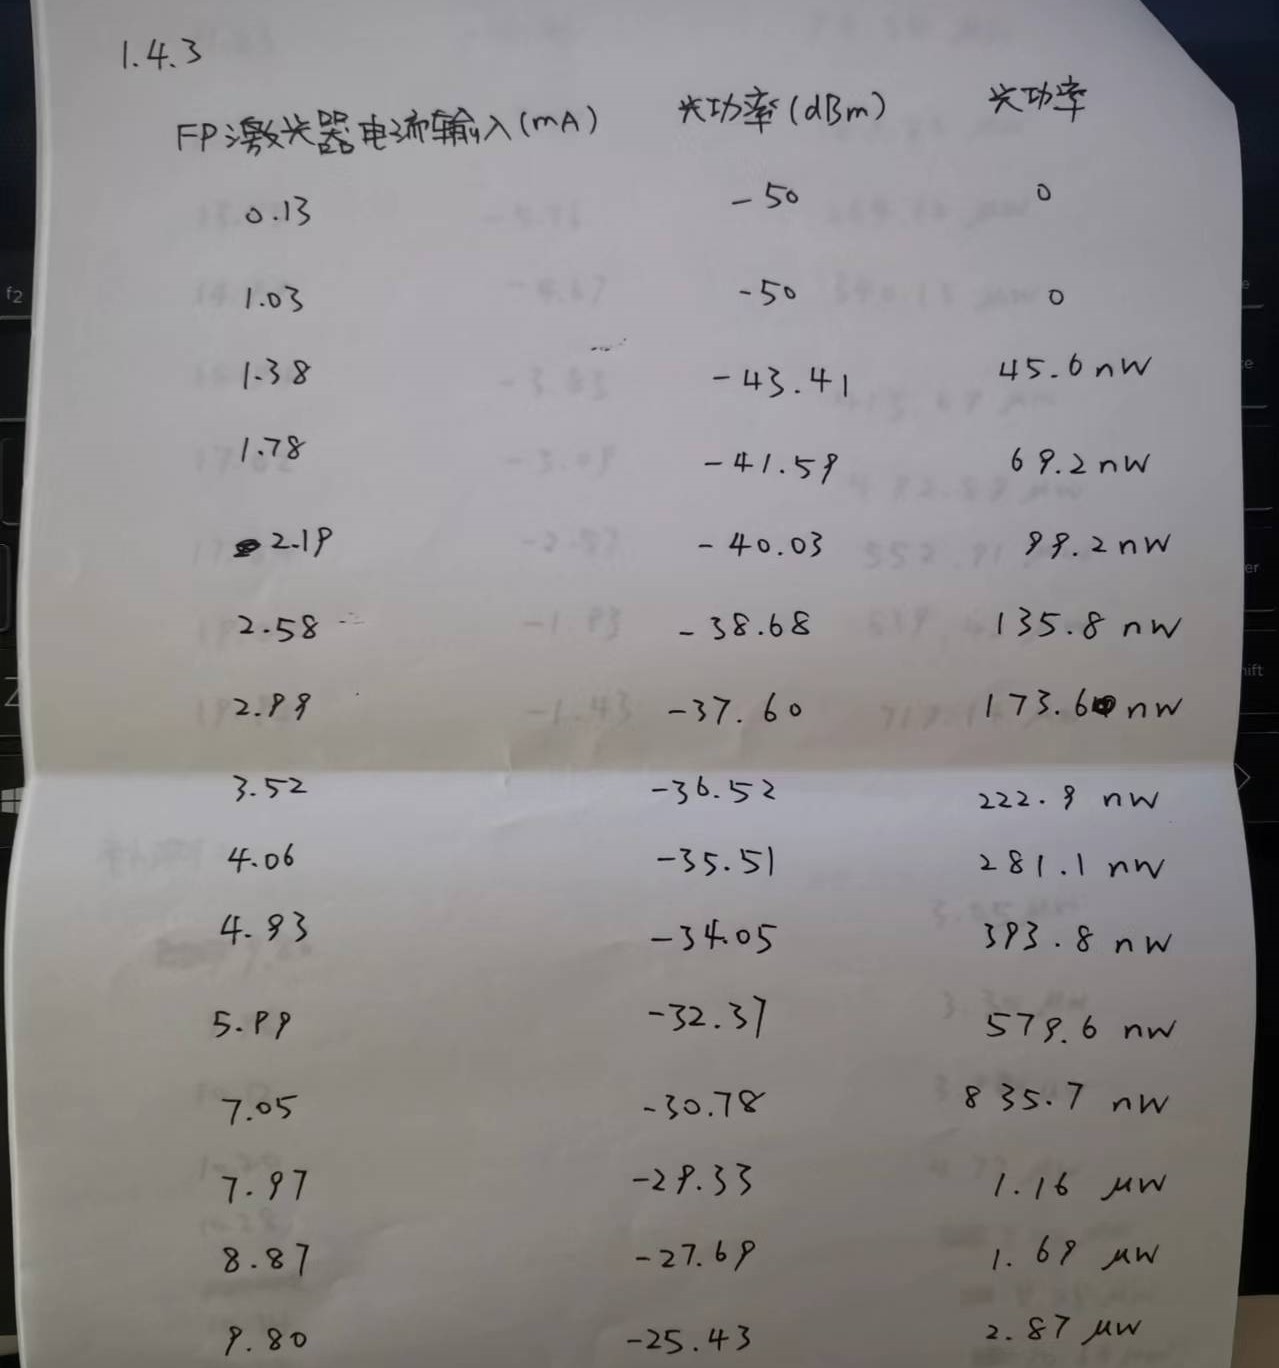 1.4.3
FP激光器电流输入(mA) 光功率(dBm) 光功率
0.13 -50 0
1.03 -50 0
1.38 -43.41 45.6 nW
1.78 -41.59 69.2 nW
2.19 -40.03 99.2 nW
2.58 -38.68 135.8 nW
2.99 -37.60 173.6 nW
3.52 -36.52 222.9 nW
4.06 -35.51 281.1 nW
4.93 -34.05 393.8 nW
5.99 -32.37 579.6 nW
7.05 -30.78 835.7 nW
7.97 -29.33 1.16 μW
8.87 -27.69 1.69 μW
9.80 -25.43 2.87 μW